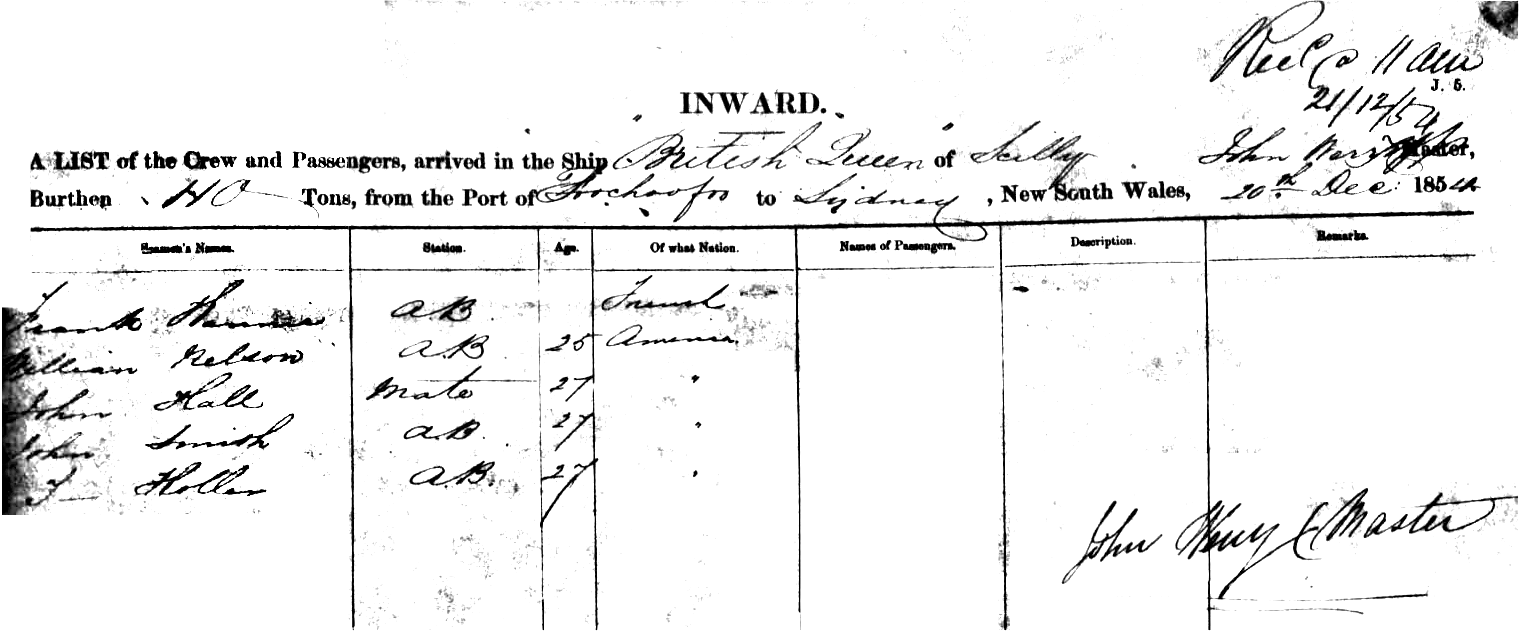 Recd 11 am
J. 5.
21/12/54
INWARD.
A LIST of the Crew and Passengers, arrived in the Ship "British Queen" of Scilly, John Master,
Burthen 40 Tons, from the Port of to Sydney, New South Wales, 20th Dec: 1854
Seamen's Names. Station. Age. Of what Nation. Names of Passengers. Description. Remarks.
Frank AB French
William Nelson AB 25 America
John Hall Mate 27 "
John Smith AB 27 "
F Holler AB. 27 "
John Henry Master